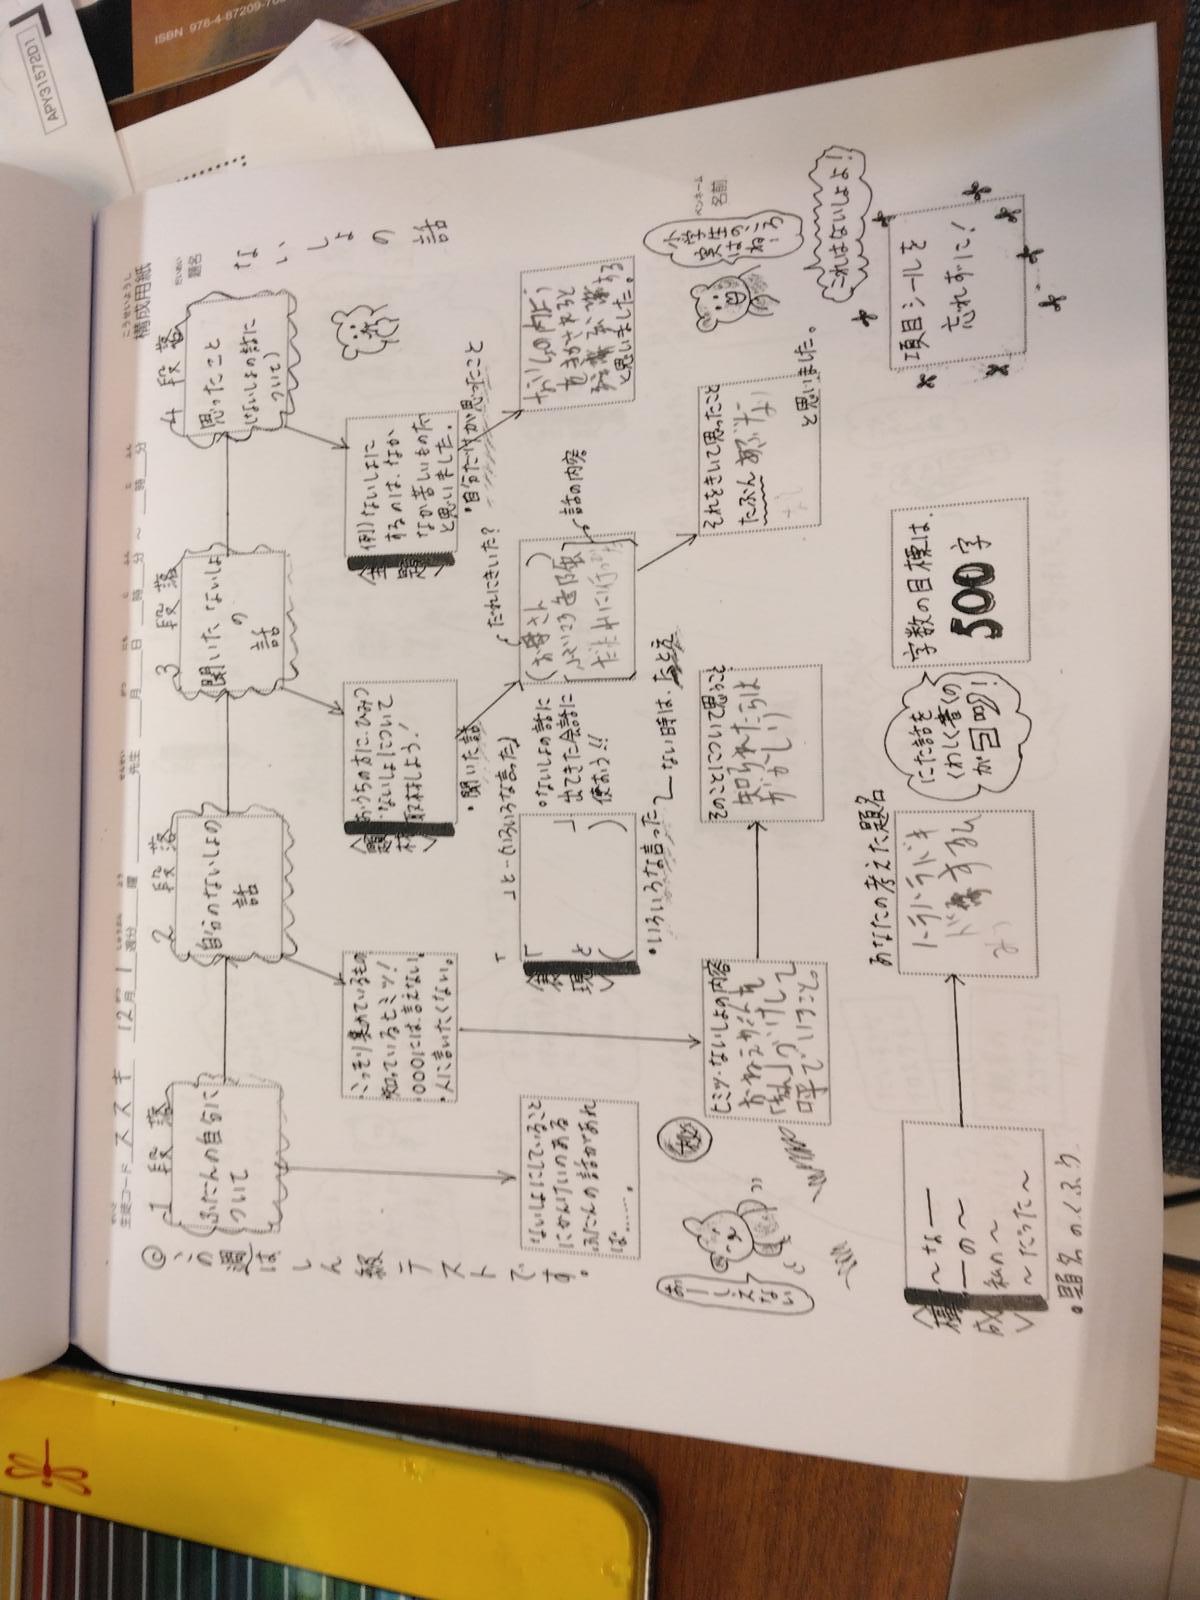 ISBN 978-4-87209-
APY31572D1
こうせいようし
構成用紙
生徒コード ススキ 12月 1週分 曜 先生 月 日 時 分 ~ 時 分
だいめい
題名
ないしょの話
ペンネーム
名前
◎この週はしん級テストです。
1段落
ふだんの自分に
ついて
ないしょにしていること
にかんけいのある
ふだんの話があれ
ば……。
2段落
自分のないしょの
話
・こっそり集めているもの
・知っているヒミツ!
・○○○には言えない。
・人に言いたくない。
ヒミツ・ないしょの内容
呼でいうこと。
そのことについて思うこと
知られたらは
ずかしい
秘
3段落
聞いたないしょ
の
話
〈題材〉
おうちの方に、ひみつ
・ないしょについて
取材しよう!
・聞いた話
だれにきいた?
お母さん
話の内容
それをきいて思ったこと
たぶんあぶない
と思いました。
〈表現〉
「 」と―(いろいろな言った)
「 」
と( )
・いろいろな言った
ない時は、
・ないしょの話に
出てきた会話に
使おう!!
4段落
思ったこと
(ないしょの話に
ついて)
〈主題〉
例)ないしょに
するのは、なか
なか苦しいものだ
と思いました。
・自分だけが思ったこと
と思いました。
小学生
実は
これはないしょよ!
おしえない
〈構成〉
~な―
―の~
私の~
~だった~
・題名のくふう
あなたの考えた題名
にた話を
くわしく書くの
が
字数の目標は、
500字
項目シールを
忘れずに!